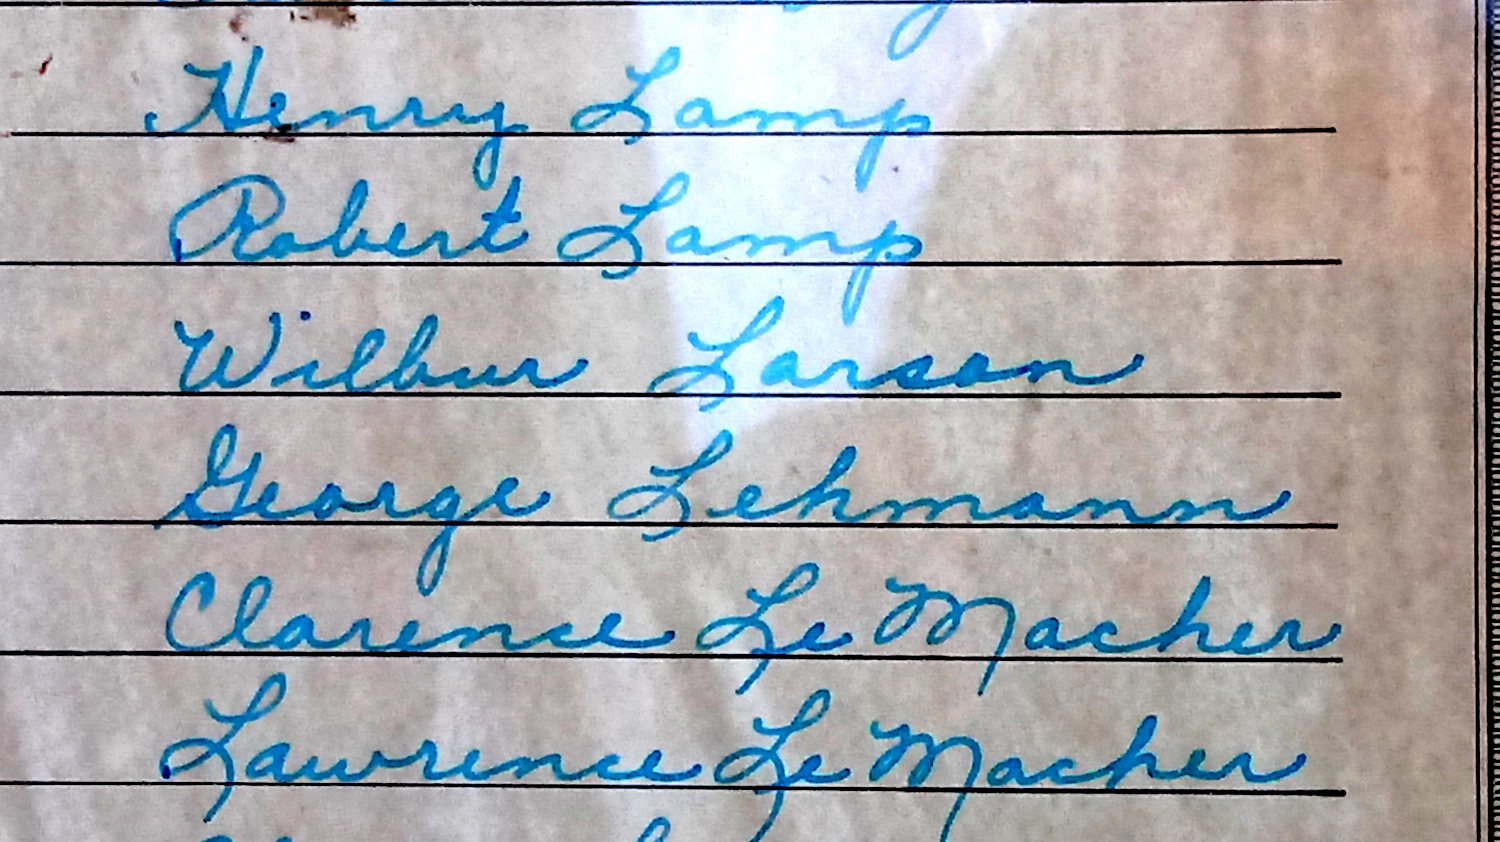 Henry Lamp
Robert Lamp
Wilbur Larson
George Lehmann
Clarence Le Macher
Lawrence Le Macher